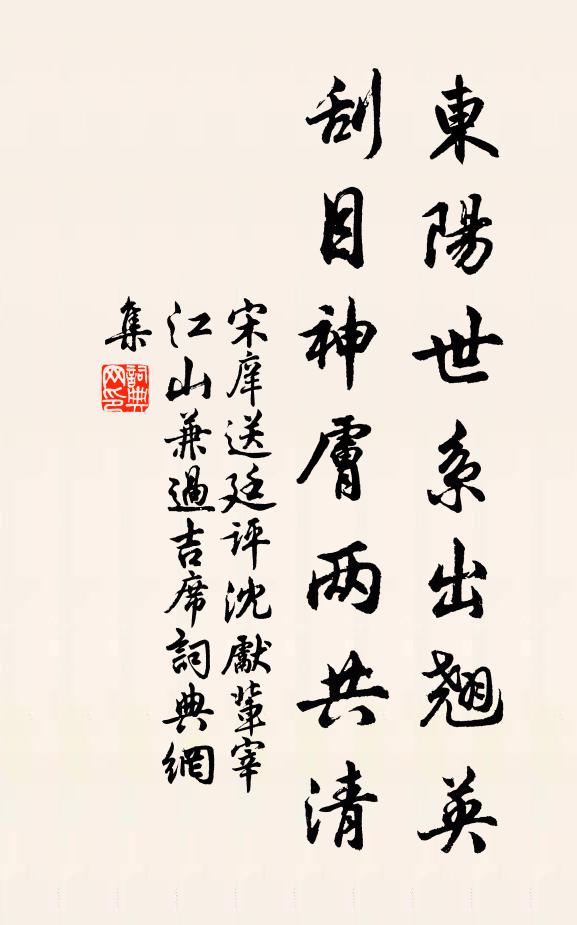 東陽世系出翹英
刮目神膚两共清
宋庠送廷評沈獻輩宰
江山兼過吉席詞典網
集
詞典网印